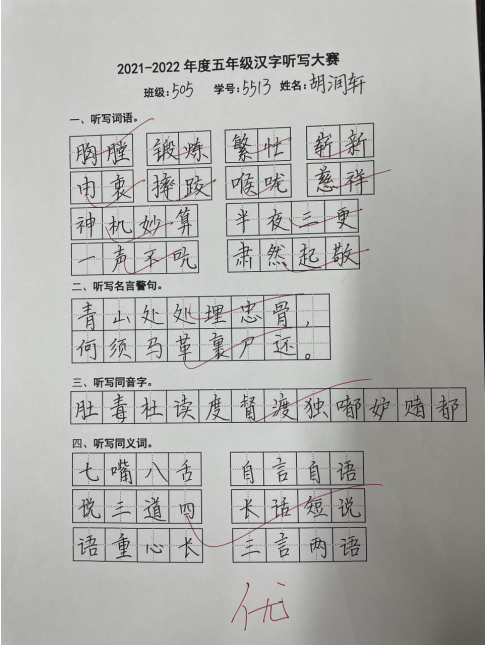 2021-2022年度五年级汉字听写大赛
班级:505 学号:5513 姓名:胡润轩
一、听写词语。
胸膛 锻炼 繁忙 崭新
由衷 摔跤 喉咙 慈祥
神机妙算 半夜三更
一声不吭 肃然起敬
二、听写名言警句。
青山处处埋忠骨,
何须马革裹尸还。
三、听写同音字。
肚毒杜读度督渡独嘟妒赌都
四、听写同义词。
七嘴八舌 自言自语
说三道四 长话短说
语重心长 三言两语
优